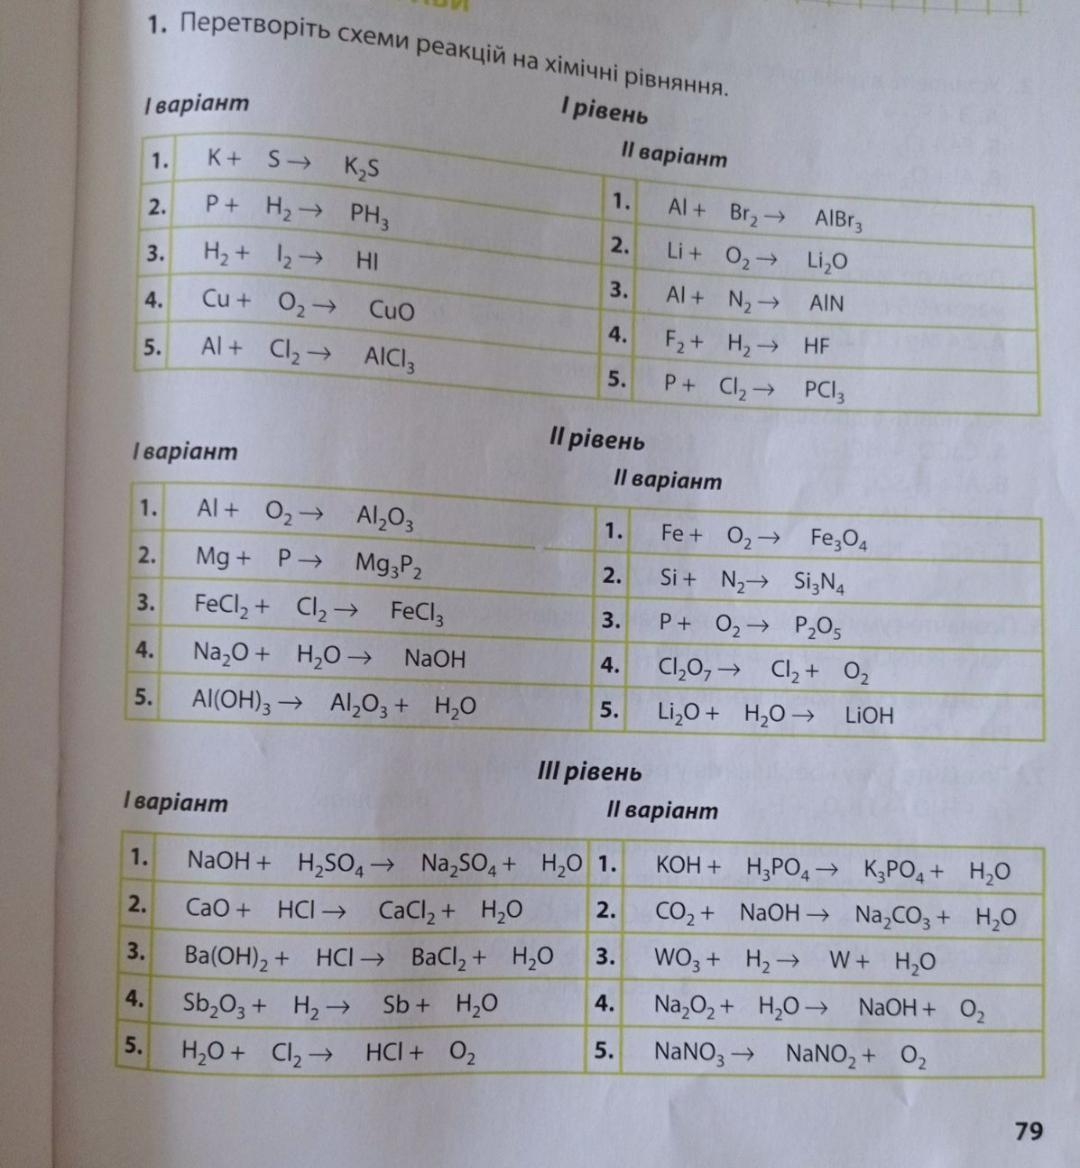 1. Перетворіть схеми реакцій на хімічні рівняння.
І рівень
І варіант
1. K + S → K₂S
2. P + H₂ → PH₃
3. H₂ + I₂ → HI
4. Cu + O₂ → CuO
5. Al + Cl₂ → AlCl₃
ІІ варіант
1. Al + Br₂ → AlBr₃
2. Li + O₂ → Li₂O
3. Al + N₂ → AlN
4. F₂ + H₂ → HF
5. P + Cl₂ → PCl₃
ІІ рівень
І варіант
1. Al + O₂ → Al₂O₃
2. Mg + P → Mg₃P₂
3. FeCl₂ + Cl₂ → FeCl₃
4. Na₂O + H₂O → NaOH
5. Al(OH)₃ → Al₂O₃ + H₂O
ІІ варіант
1. Fe + O₂ → Fe₃O₄
2. Si + N₂ → Si₃N₄
3. P + O₂ → P₂O₅
4. Cl₂O₇ → Cl₂ + O₂
5. Li₂O + H₂O → LiOH
ІІІ рівень
І варіант
1. NaOH + H₂SO₄ → Na₂SO₄ + H₂O
2. CaO + HCl → CaCl₂ + H₂O
3. Ba(OH)₂ + HCl → BaCl₂ + H₂O
4. Sb₂O₃ + H₂ → Sb + H₂O
5. H₂O + Cl₂ → HCl + O₂
ІІ варіант
1. KOH + H₃PO₄ → K₃PO₄ + H₂O
2. CO₂ + NaOH → Na₂CO₃ + H₂O
3. WO₃ + H₂ → W + H₂O
4. Na₂O₂ + H₂O → NaOH + O₂
5. NaNO₃ → NaNO₂ + O₂
79